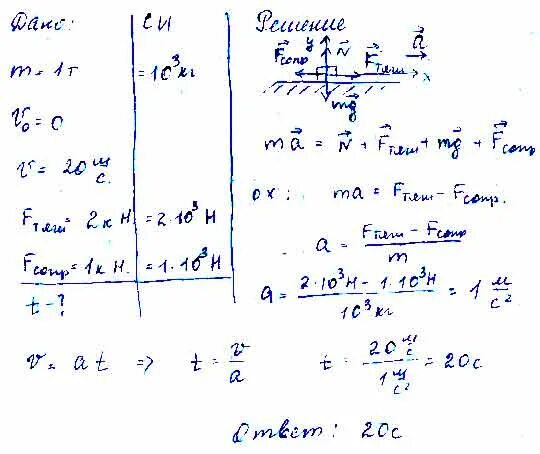 Дано:
СИ
m = 1т
= 10³ кг
v₀ = 0
v = 20 м/с.
Fтяги = 2кН
= 2·10³ Н
Fсопр = 1кН.
= 1·10³ Н
t - ?
Решение
y N a
Fсопр Fтяги x
mg
ma = N + Fтяги + mg + Fсопр
ox: ma = Fтяги - Fсопр.
a = (Fтяги - Fсопр)/m
a = (2·10³Н - 1·10³Н)/10³кг = 1 м/с²
v = at => t = v/a t = (20 м/с)/(1 м/с²) = 20с
Ответ: 20с